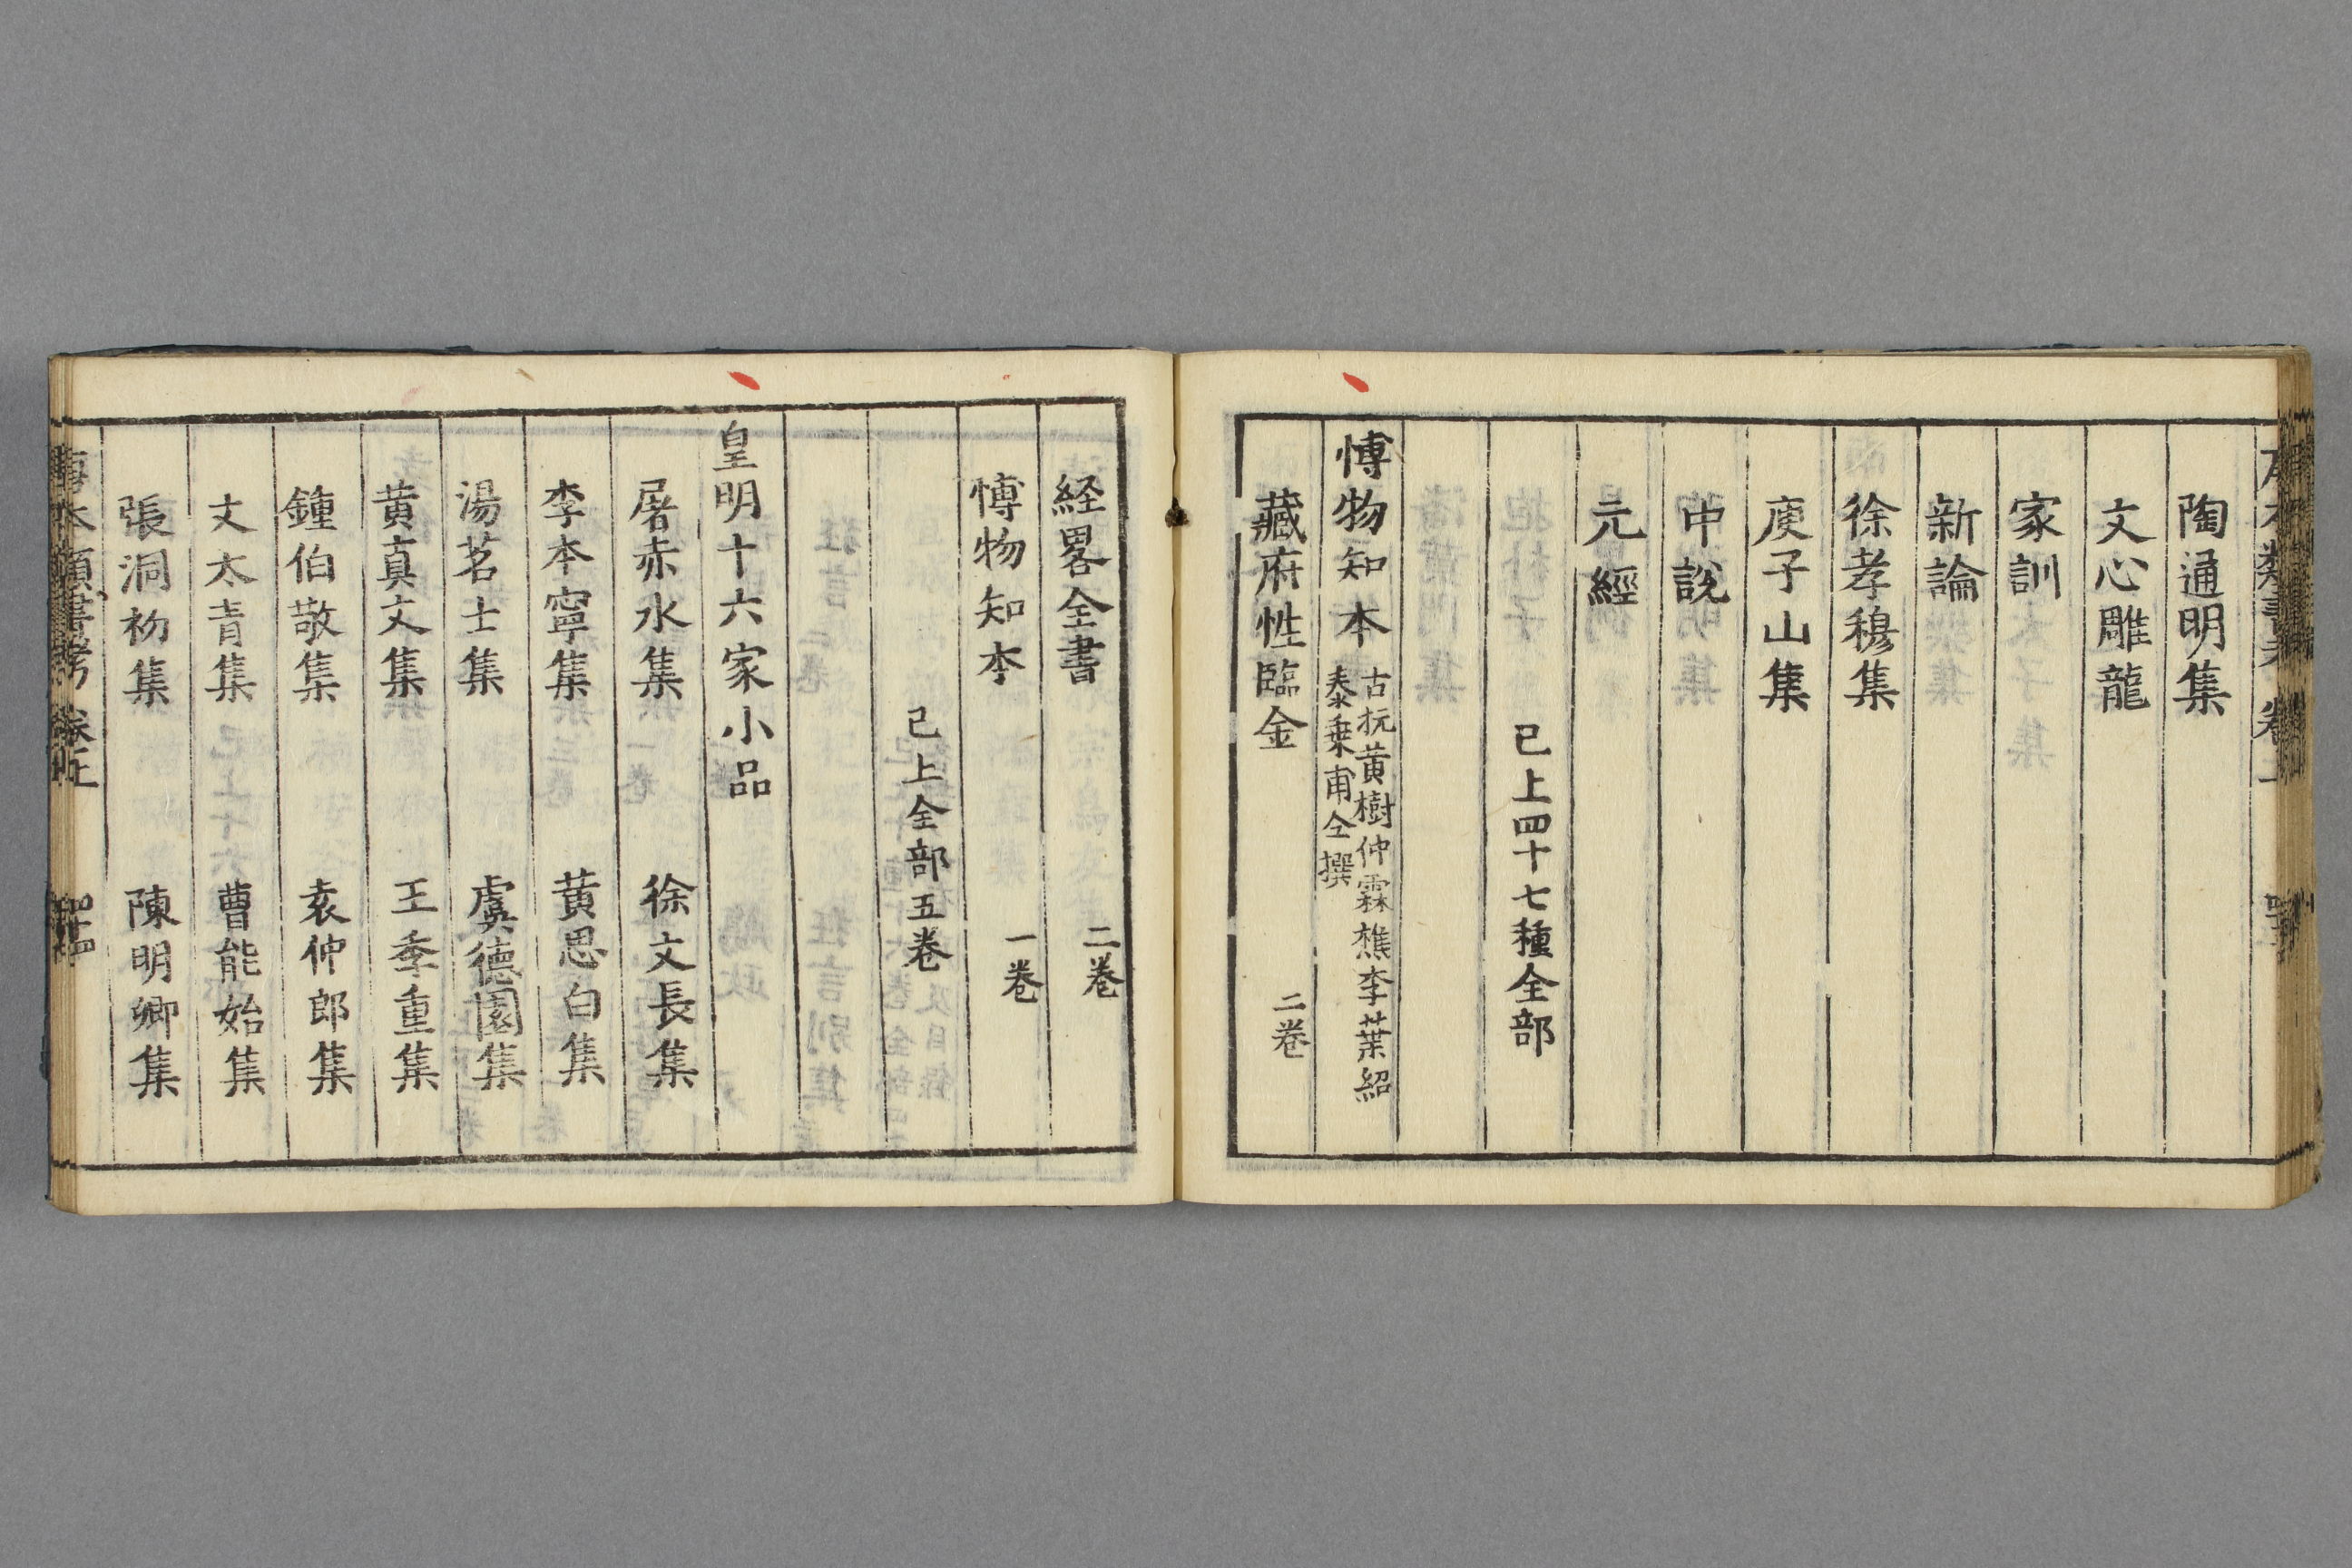 陶通明集
文心雕龍
家訓
新論
徐孝穆集
庾子山集
中說
元經
已上四十七種全部
博物知本 古抗黄樹仲霖檇李葉紹
泰乗甫仝撰
藏府性臨金 二巻
経畧全書 二巻
博物知本 一巻
已上全部五巻
皇明十六家小品
屠赤水集 徐文長集
李本寧集 黄思白集
湯若士集 虞德園集
黄真文集 王季重集
鍾伯敬集 袁仲郎集
文太青集 曹能始集
張洞初集 陳明卿集